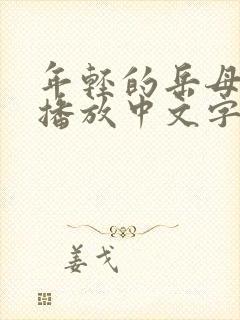 年轻的岳母
播放中文字
姜戈